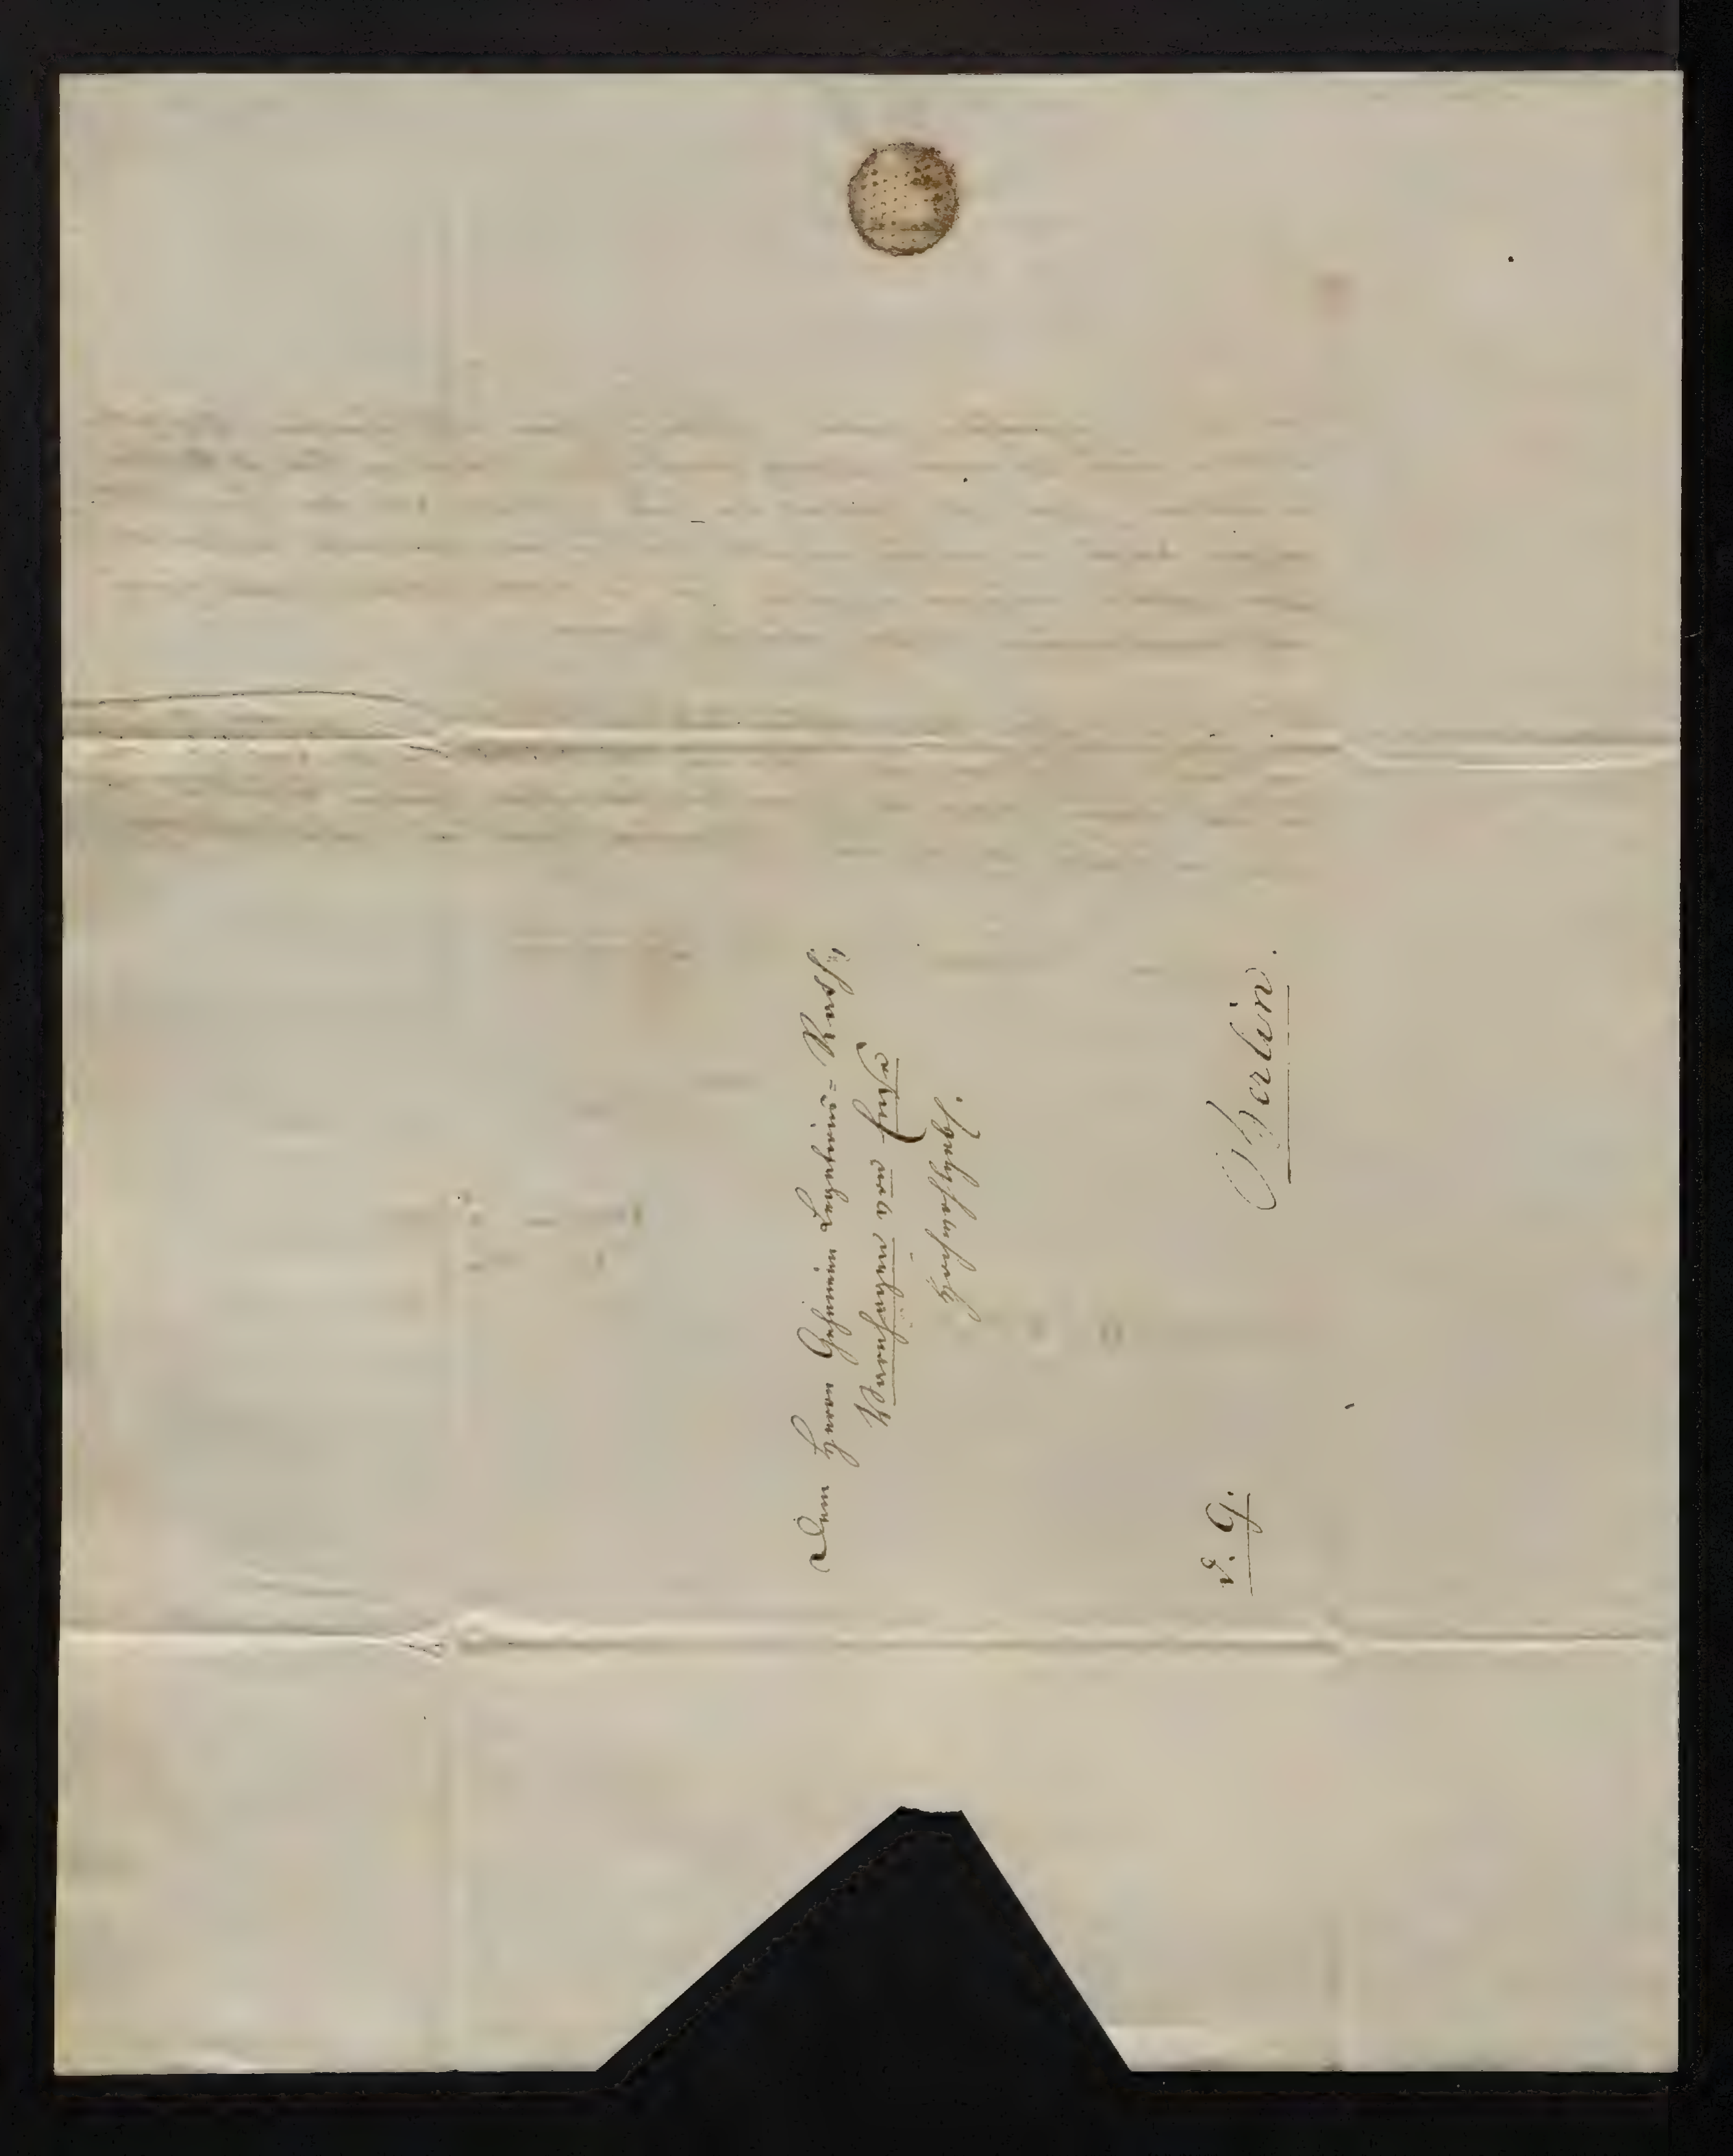 Dem Herrn Geheimen Legations-Rath,
Varnhagen von Ense
Hochwohlgeb.
Berlin.
d. G.